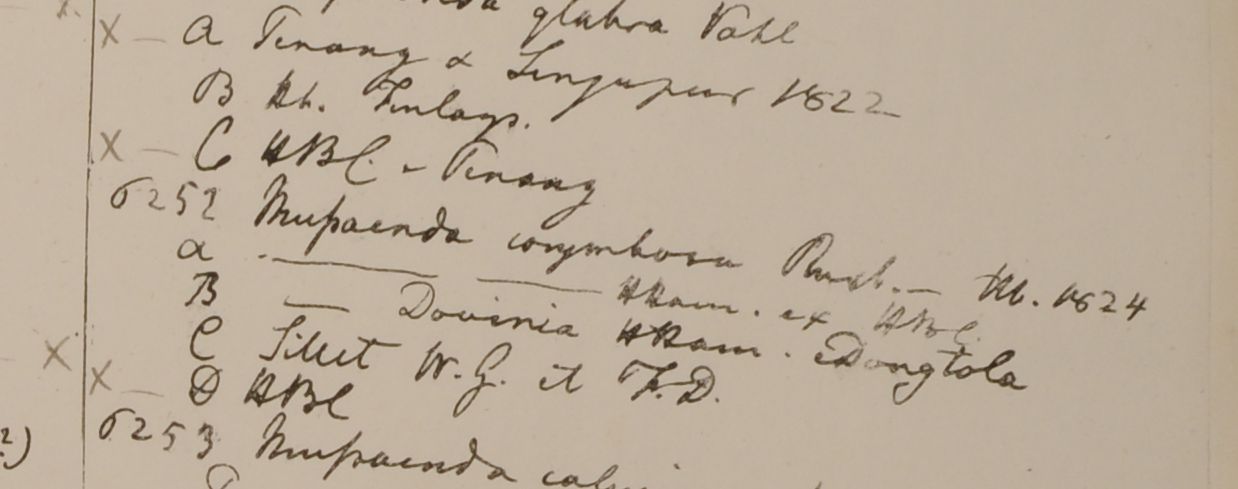 glabra Vahl
X – a Penang & Singapur 1822
B Hb. Finlays.
X – C HBC. – Penang
6252 Mussaenda corymbosa Roxb. – Hb. 1824
a . —— —— HHam. ex HBC.
B — Dovinia HHam. Dongtola
C Sillet W.G. et F.D.
X X – D HBC
6253 Mussaenda
?)